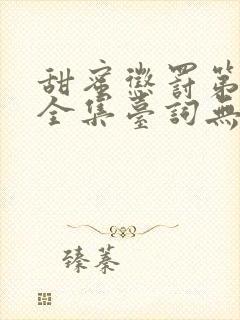 甜蜜懲罰第
全集臺詞無
臻蓁